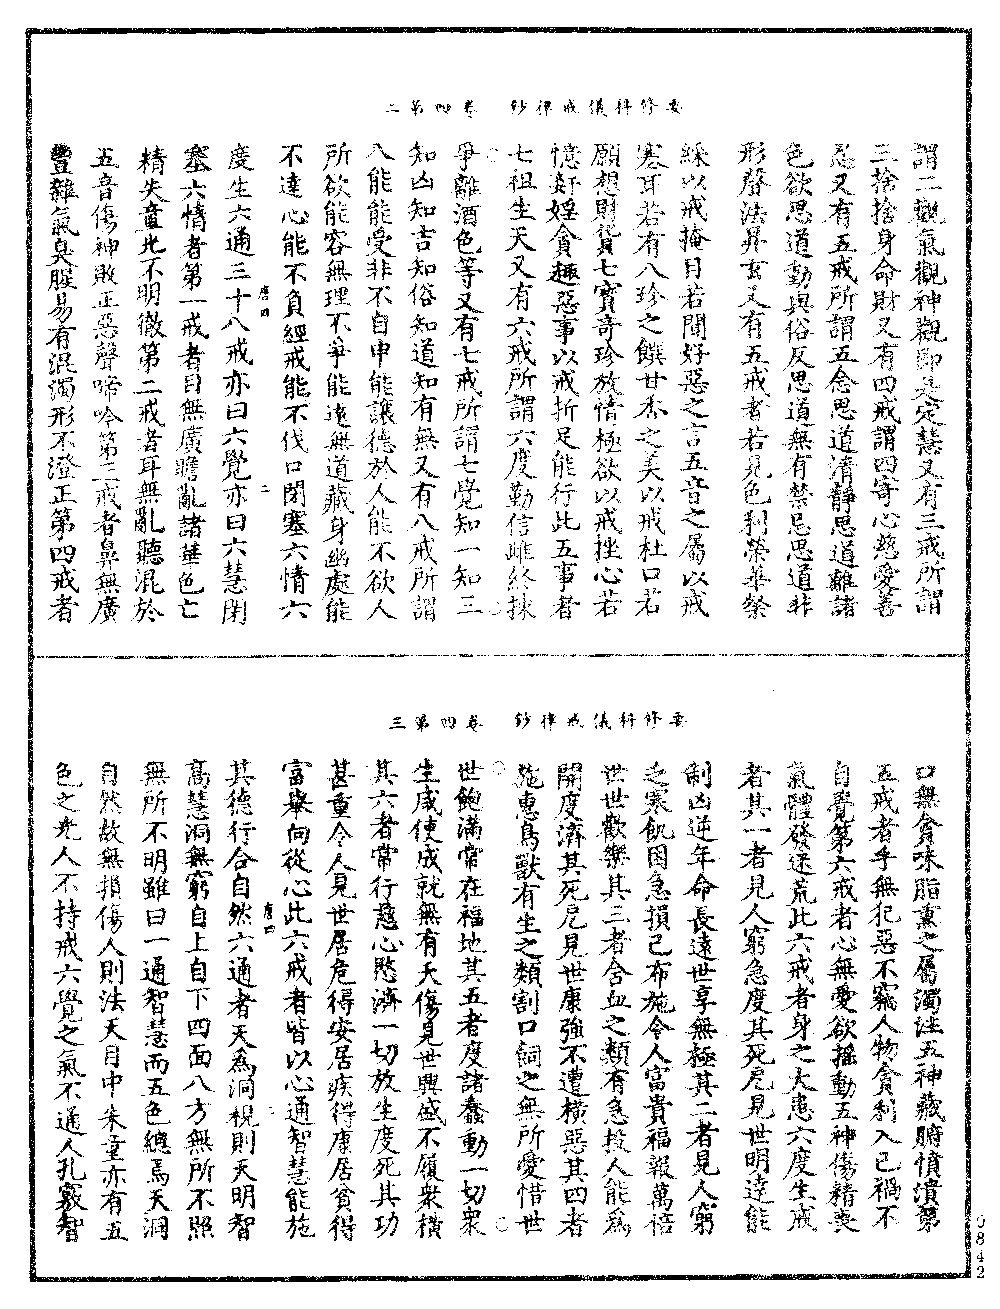 要修科儀戒律鈔　卷四第二
謂二觀氣觀神觀即是定慧又有三戒所謂
三捨捨身命財又有四戒謂四寄心慈愛善
忍又有五戒所謂五念思道清靜思道離諸
色欲思道動與俗反思道無有禁忌思道非
形聲法昇玄又有五戒者若見色利榮華榮
綵以戒掩目若聞好惡之言五音之屬以戒
塞耳若有八珍之饌甘香之美以戒杜口若
願想財貨七寶奇珍放情極欲以戒挫心若
憶姧婬貪趣惡事以戒折足能行此五事者
七祖生天又有六戒所謂六度勤信雌終抹
爭離酒色等又有七戒所謂七覺知一知三
知凶知吉知俗知道知有無又有八戒所謂
八能能受非不自申能讓德於人能不欲人
所欲能容無理不爭能遠無道藏身幽處能
不達心能不負經戒能不伐口閉塞六情六
度生六通三十八戒亦曰六覺亦曰六慧閉
唐四　二
塞六情者第一戒者目無廣瞻亂諸華色亡
精失童此不明徹第二戒者耳無亂聽混於
五音傷神敗正惡聲啼吟第三戒者鼻無廣
亹雜氣臭腥易有混濁形不澄正第四戒者
要修科儀戒律鈔　卷四第三
口無貪味脂熏之屬濁注五神藏腑憤潰第
五戒者手無犯惡不竊人物貪利入己禍不
自覺第六戒者心無愛欲搖動五神傷精喪
氣體發迷荒此六戒者身之大患六度生戒
者其一者見人窮急度其死危見世明達能
制凶逆年命長遠世享無極其二者見人窮
之寒飢困急損己布施令人富貴福報萬倍
世世歡樂其三者含血之類有急投人能為
開度濟其死危見世康強不遭橫惡其四者
施惠鳥獸有生之類割口飼之無所愛惜世
世飽滿常在福地其五者度諸蠢動一切衆
生咸使成就無有夭傷見世興盛不履衆橫
其六者常行慈心愍濟一切放生度死其功
甚重令人見世居危得安居疾得康居貧得
富舉向從心此六戒者皆以心通智慧能施
其德行合自然六通者天為洞視則天明智
唐四　二
高慧洞無窮自上自下四面八方無所不照
無所不明雖曰一通智慧而五色總焉天洞
自然故無損傷人則法天目中朱童亦有五
色之光人不持戒六覺之氣不通人孔竅智
0842